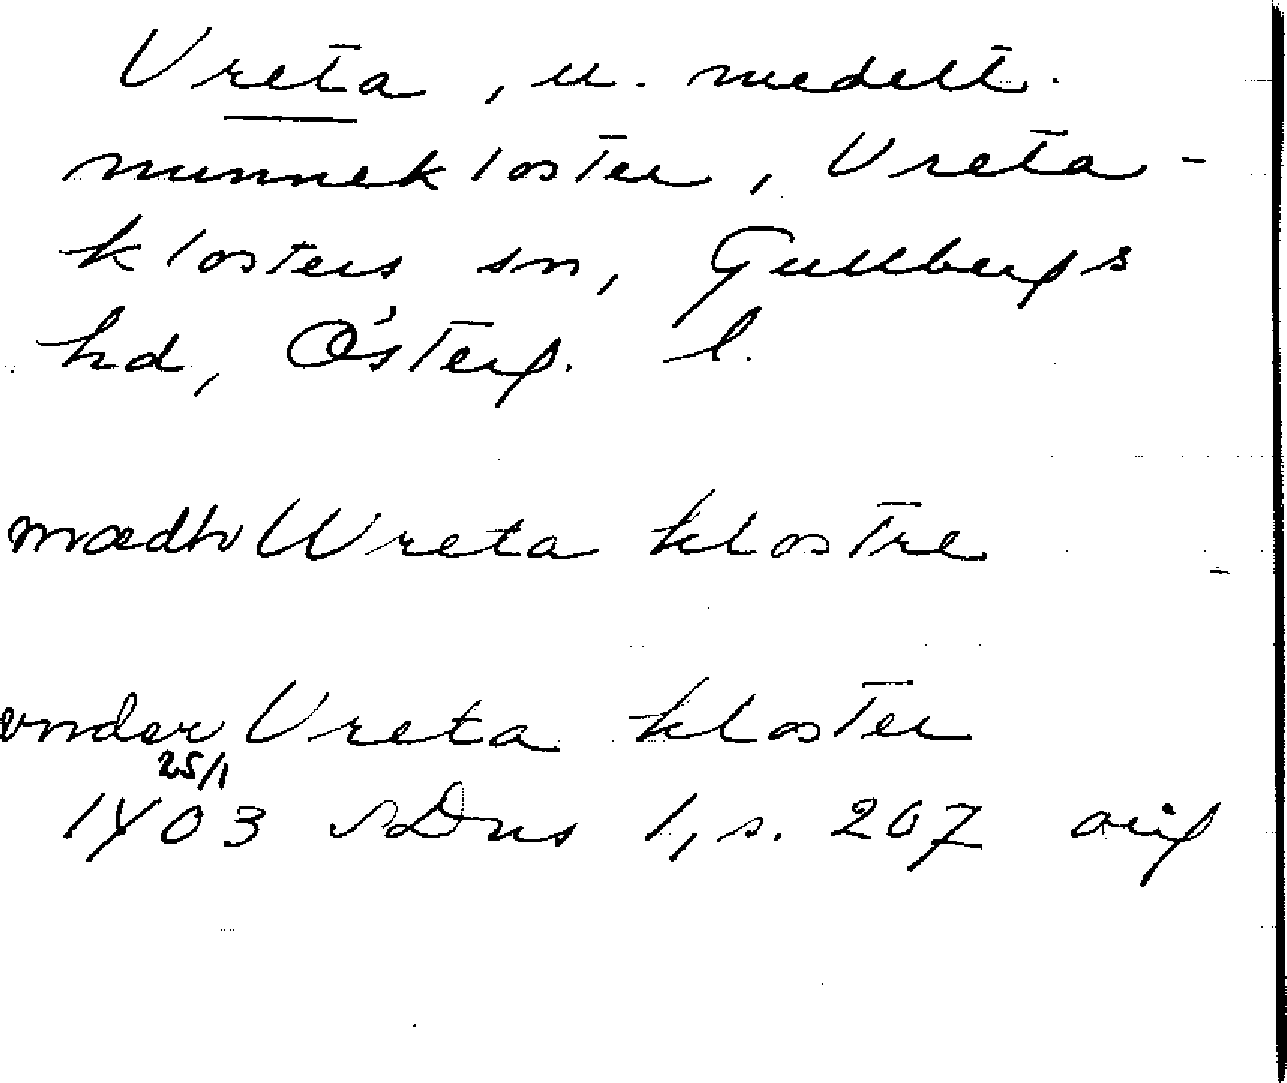 Vreta, u. medelt.
nunnekloster, Vreta-
klosters sn, Gullbergs
hd, Österg. l.
mædh Wreta klostre
vnder Vreta kloster
25/1
1403 SDns 1, s. 207 orig